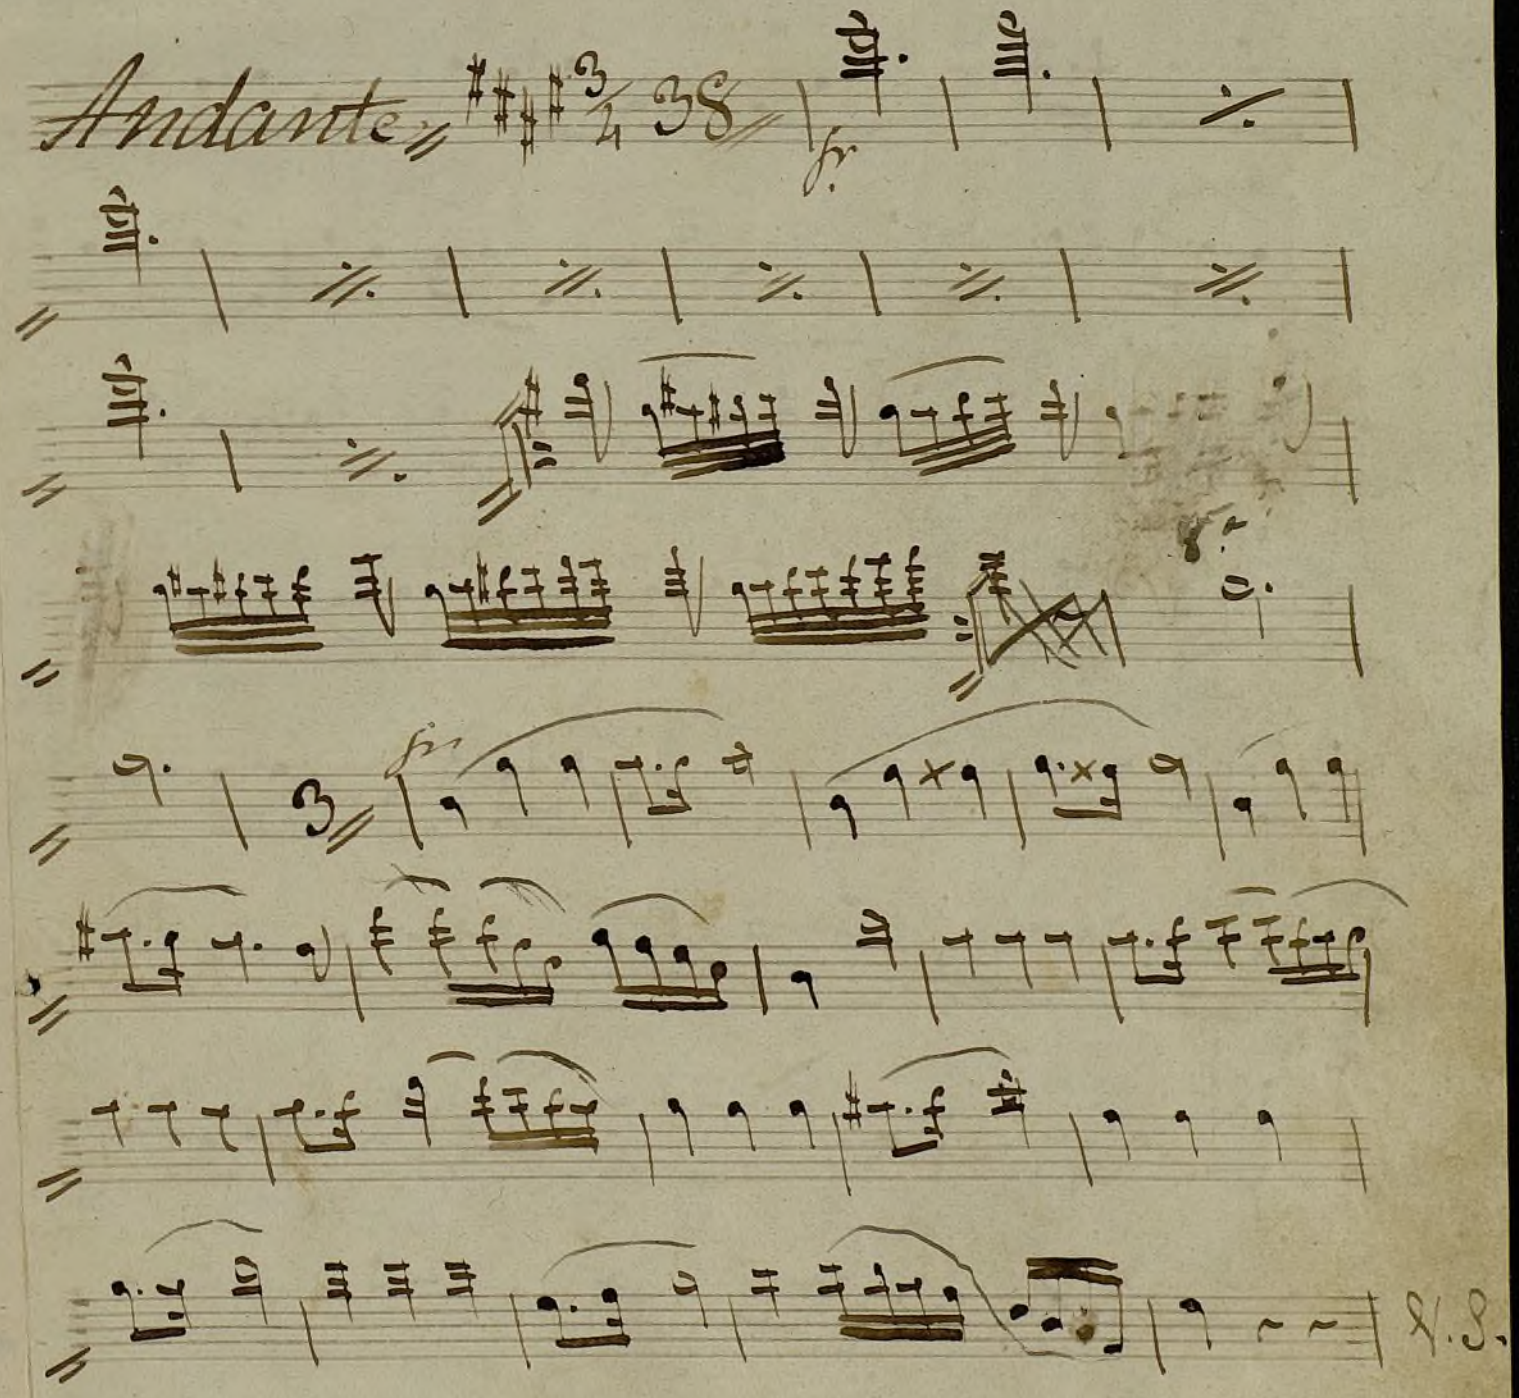 Andante 3/4 38
fr.
8.a
3
fr
V. S.